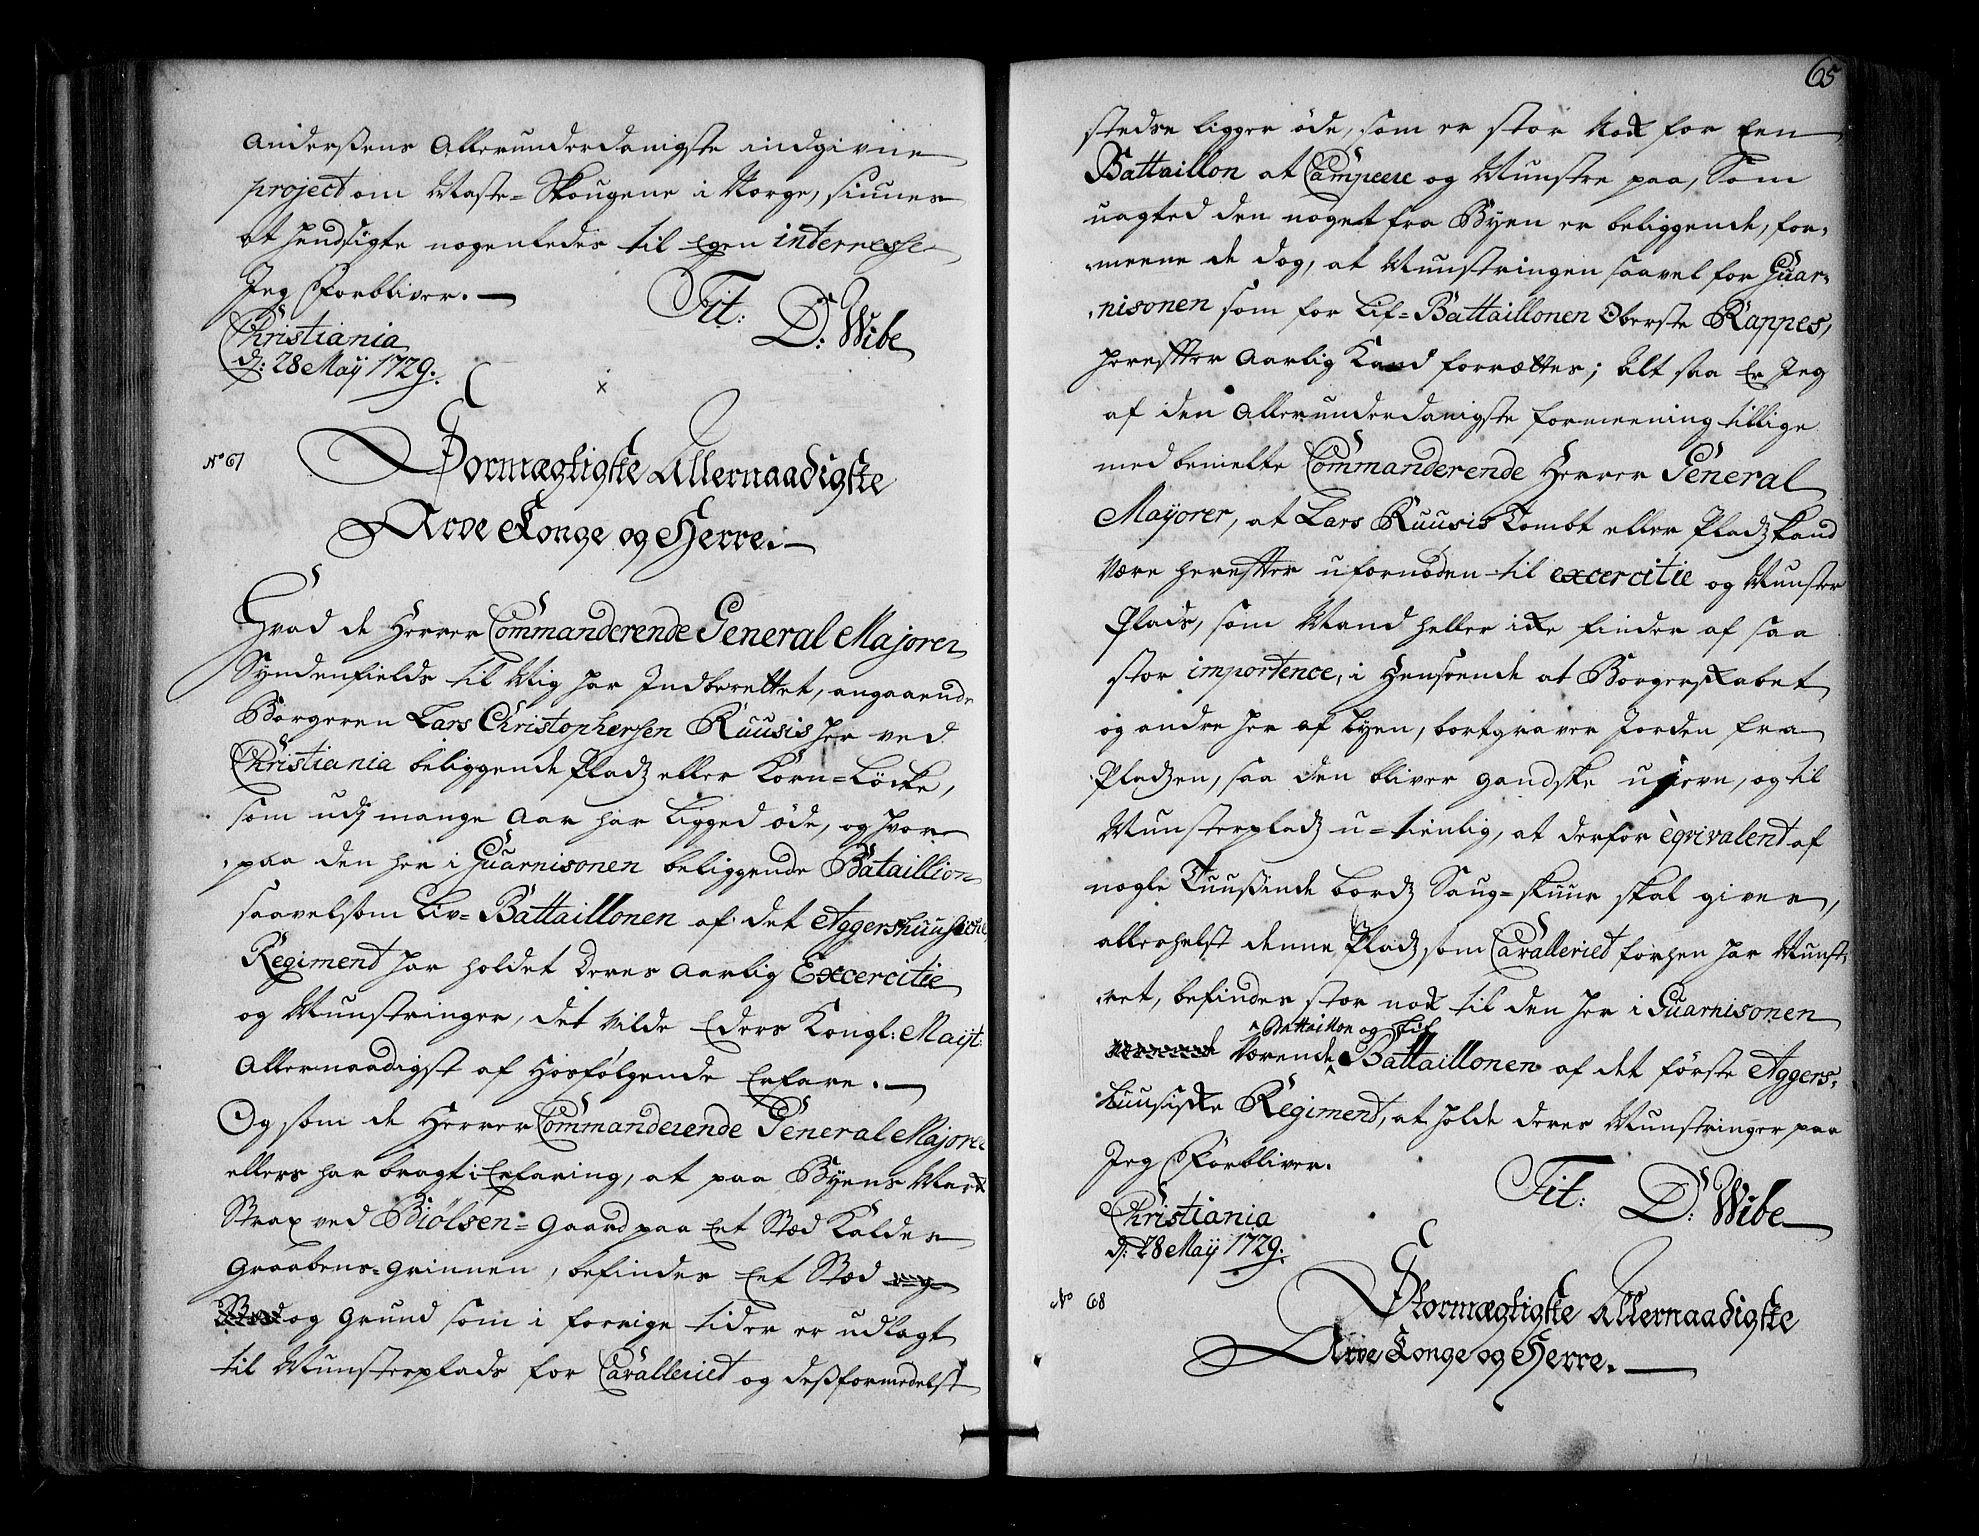 Anderßens Allerunderdanigste indgivne
project om Maste-Skougene i Norge, siunes
at hendsigte nogenledes til egen interesse
Jeg Forbliver.
Tit: D: Wibe
Christiania
d: 28 Maij 1729.
No 67
Stormægtigste Allernaadigste
Arve Konge og Herre.
Hvad de Herrer Commanderende General Majorer
Syndenfields til Mig har Indberettet, angaaende
Borgeren Lars Christophersen Ruusis her ved
Christiania beliggende Pladz eller Korn-Löcke,
som udj mange Aar har ligged öde, og hvor-
paa den her i Guarnisonen beliggende Bataillion
saavelsom Liv-Battaillonen af det Aggershuusiche
Regiment har holdet deres Aarlig Excercitie
og Munstringer, det vilde Eders Kongl: Mayt:
Allernaadigst af Hosfölgende Erfare.
Og som de Herrer Commanderende General Majorer
ellers har bragt i Erfaring, at paa Byens Mark
Strax ved Biölsen-Gaard paa Eet Stæd Kaldes
Graabens-Grinnen, befindes Eet Stæd
og Grund som i forrige tider er udlagt
til Munsterplads for Cavalleriet og desformedelst
65
stedse ligger öde, som er stor nok for Een
Battaillon at Campeere og Munstre paa, Som
uagted den noget fra Byen er beliggende, for-
meene de dog, at Munstringen saavel for Guar-
nisonen som for Lif-Battaillonen Oberste Rappes,
herefter Aarlig Kand forrættes; Alt saa Er Jeg
af den Allerunderdanigste formeening tillige
med bemelte Commanderende Herrer General
Mayorer, at Lars Ruusis Tombt eller Pladz kand
være herefter ufornöden til excercitie og Munster
Plads, som Mand heller ike finder af saa
stor importence, i Henseende at Borgerskabet
og andre her af byen, bortgraver Jorden fra
Pladzen, saa den bliver gandske ujevn, og til
Munsterpladz u-tienlig, at derfor eqvivalent af
nogle Tuusinde bordz Saug-skuur skal gives,
allerhelst denne Pladz som Cavalleriet forhen har Munst-
ret, befindes stor nok til den her i Guarnisonen
værende Battaillon og Lif Battaillonen af det förste Aggers-
huusiske Regiment, at holde deres Munstringer paa
Jeg Forbliver.
Tit: D: Wibe
Christiania
d: 28 Maij 1729.
No 68
Stormægtigste Allernaadigste
Arve Konge og Herre.